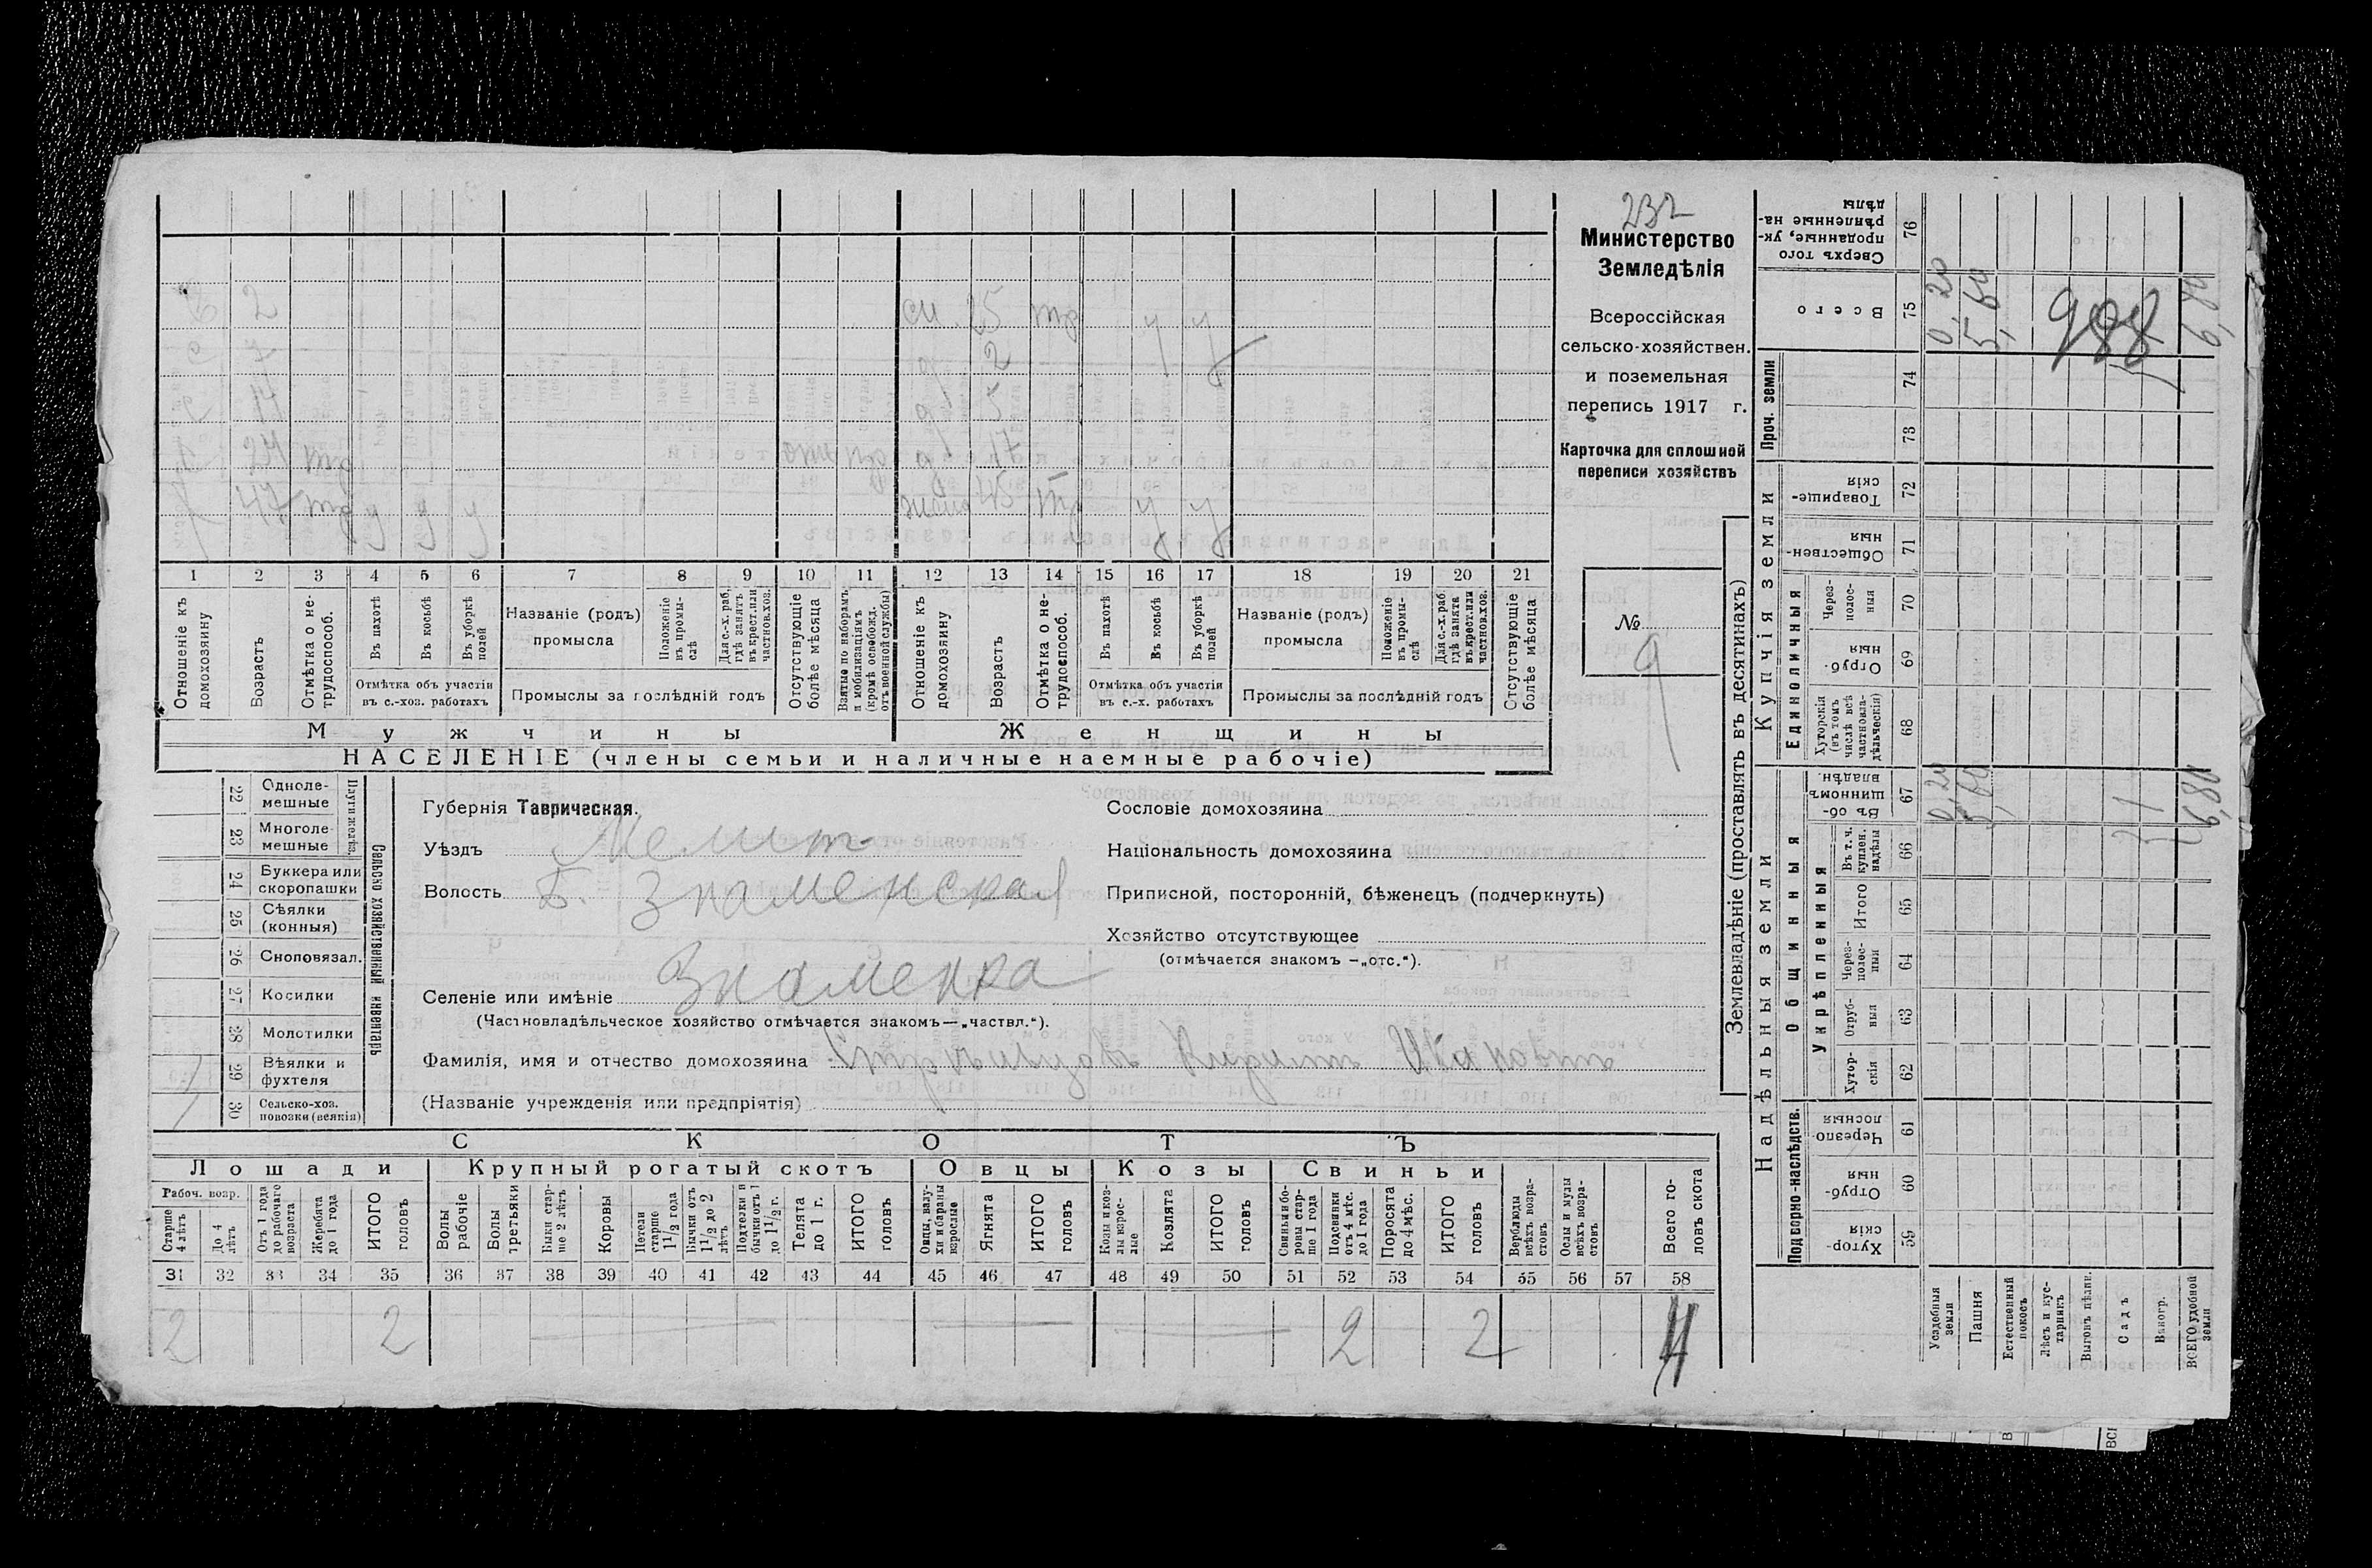 232
Министерство
Земледѣлія
Всероссійская
сельско-хозяйствен.
и поземельная
перепись 1917 г.
Карточка для сплошной
переписи хозяйствъ
№ 9
2 см. 25 тр у у
7 д 2
17 д 5
24 тр д 17
47 тр у у у жена 45 тр у у
1 2 3 4 5 6 7 8 9 10 11 12 13 14 15 16 17 18 19 20 21
Отношеніе къ домохозяину
Возрастъ
Отмѣтка о не-трудоспособ.
Въ пахотѣ
Въ косьбѣ
Въ уборкѣ полей
Отмѣтка объ участіи въ с.-хоз. работахъ
Названіе (родъ) промысла
Положеніе въ промы-слѣ
Для с.-х. раб. гдѣ занятъ въ крест. или частнов. хоз.
Промыслы за послѣдній годъ
Отсутствующіе болѣе мѣсяца
Взятые по наборамъ и мобилизаціямъ (кромѣ освобожд. отъ военной службы)
Отношеніе къ домохозяину
Возрастъ
Отмѣтка о не-трудоспособ.
Въ пахотѣ
Въ косьбѣ
Въ уборкѣ полей
Отмѣтка объ участіи въ с.-х. работахъ
Названіе (родъ) промысла
Положеніе въ промы-слѣ
Для с.-х. раб. гдѣ занята въ крест. или частнов. хоз.
Промыслы за послѣдній годъ
Отсутствующіе болѣе мѣсяца
Мужчины Женщины
НАСЕЛЕНІЕ (члены семьи и наличные наемные рабочіе)
Сельско хозяйственный инвентарь
Плуги желѣз.
22 Одноле-мешные
23 Многоле-мешные
24 Буккера или скоропашки
25 Сѣялки (конныя)
26 Сноповязал.
27 Косилки
28 Молотилки
29 Вѣялки и фухтеля
30 Сельско-хоз. повозки (всякія)
Губернія Таврическая.
Уѣздъ Мелит
Волость Б. Знаменская
Селеніе или имѣніе Знаменка
(Частновладѣльческое хозяйство отмѣчается знакомъ—„частвл.“).
Фамилія, имя и отчество домохозяина
(Названіе учрежденія или предпріятія)
Сословіе домохозяина
Національность домохозяина
Приписной, посторонній, бѣженецъ (подчеркнуть)
Хозяйство отсутствующее
(отмѣчается знакомъ —„отс.“).
СКОТЪ
Лошади Крупный рогатый скотъ Овцы Козы Свиньи
Рабоч. возр.
Старше 4 лѣтъ
До 4 лѣтъ
Отъ 1 года до рабочаго возраста
Жеребята до 1 года
ИТОГО головъ
Волы рабочіе
Волы третьяки
Быки стар-ше 2 лѣтъ
Коровы
Нетели старше 1 1/2 года
Бычки отъ 1 1/2 до 2 лѣтъ
Подтелки и бычки отъ 1 до 1 1/2 г.
Телята до 1 г.
ИТОГО головъ
Овцы, валу-хи и бараны взрослые
Ягнята
ИТОГО головъ
Козы и коз-лы взрос-лые
Козлята
ИТОГО головъ
Свиньи и бо-ровы стар-ше 1 года
Подсвинки отъ 4 мѣс. до 1 года
Поросята до 4 мѣс.
ИТОГО головъ
Верблюды всѣхъ возра-стовъ
Ослы и мулы всѣхъ возра-стовъ
Всего го-ловъ скота
31 32 33 34 35 36 37 38 39 40 41 42 43 44 45 46 47 48 49 50 51 52 53 54 55 56 57 58
2 2 2 2 4
Землевладѣніе (проставлять въ десятинахъ)
Надѣльныя земли Купчія земли Проч. земли
Подворно-наслѣдств.
Общинныя
Укрѣпленныя
Единоличныя
Хутор-скія 59
Отруб-ныя 60
Черезпо-лосныя 61
Хутор-скія 62
Отруб-ныя 63
Через-полос-ныя 64
Итого 65
Въ т. ч. куплен. надѣлы 66
Въ об-щинномъ владѣн. 67
Хуторскія (въ томъ числѣ всѣ частновла-дѣльческія) 68
Отруб-ныя 69
Через-полос-ныя 70
Обществен-ныя 71
Товарище-скія 72
73
74
Всего 75
Сверхъ того проданные, ук-рѣпленные на-дѣлы 76
Усадебныя земли 0,20 0,20
Пашня
Естественный покосъ
Лѣсъ и кус-тарникъ
Выгонъ цѣлин.
Садъ
Виногр.
ВСЕГО удобной земли
988